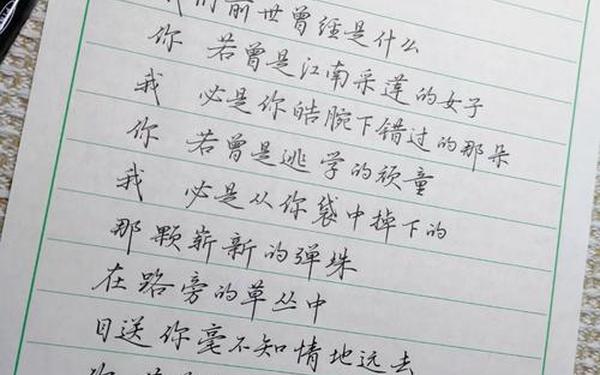 我们前世曾经是什么
你 若曾是江南采莲的女子
我 必是你皓腕下错过的那朵
你 若曾是逃学的顽童
我 必是从你袋中掉下的
那颗崭新的弹珠
在路旁的草丛中
目送你毫不知情地远去
你 若